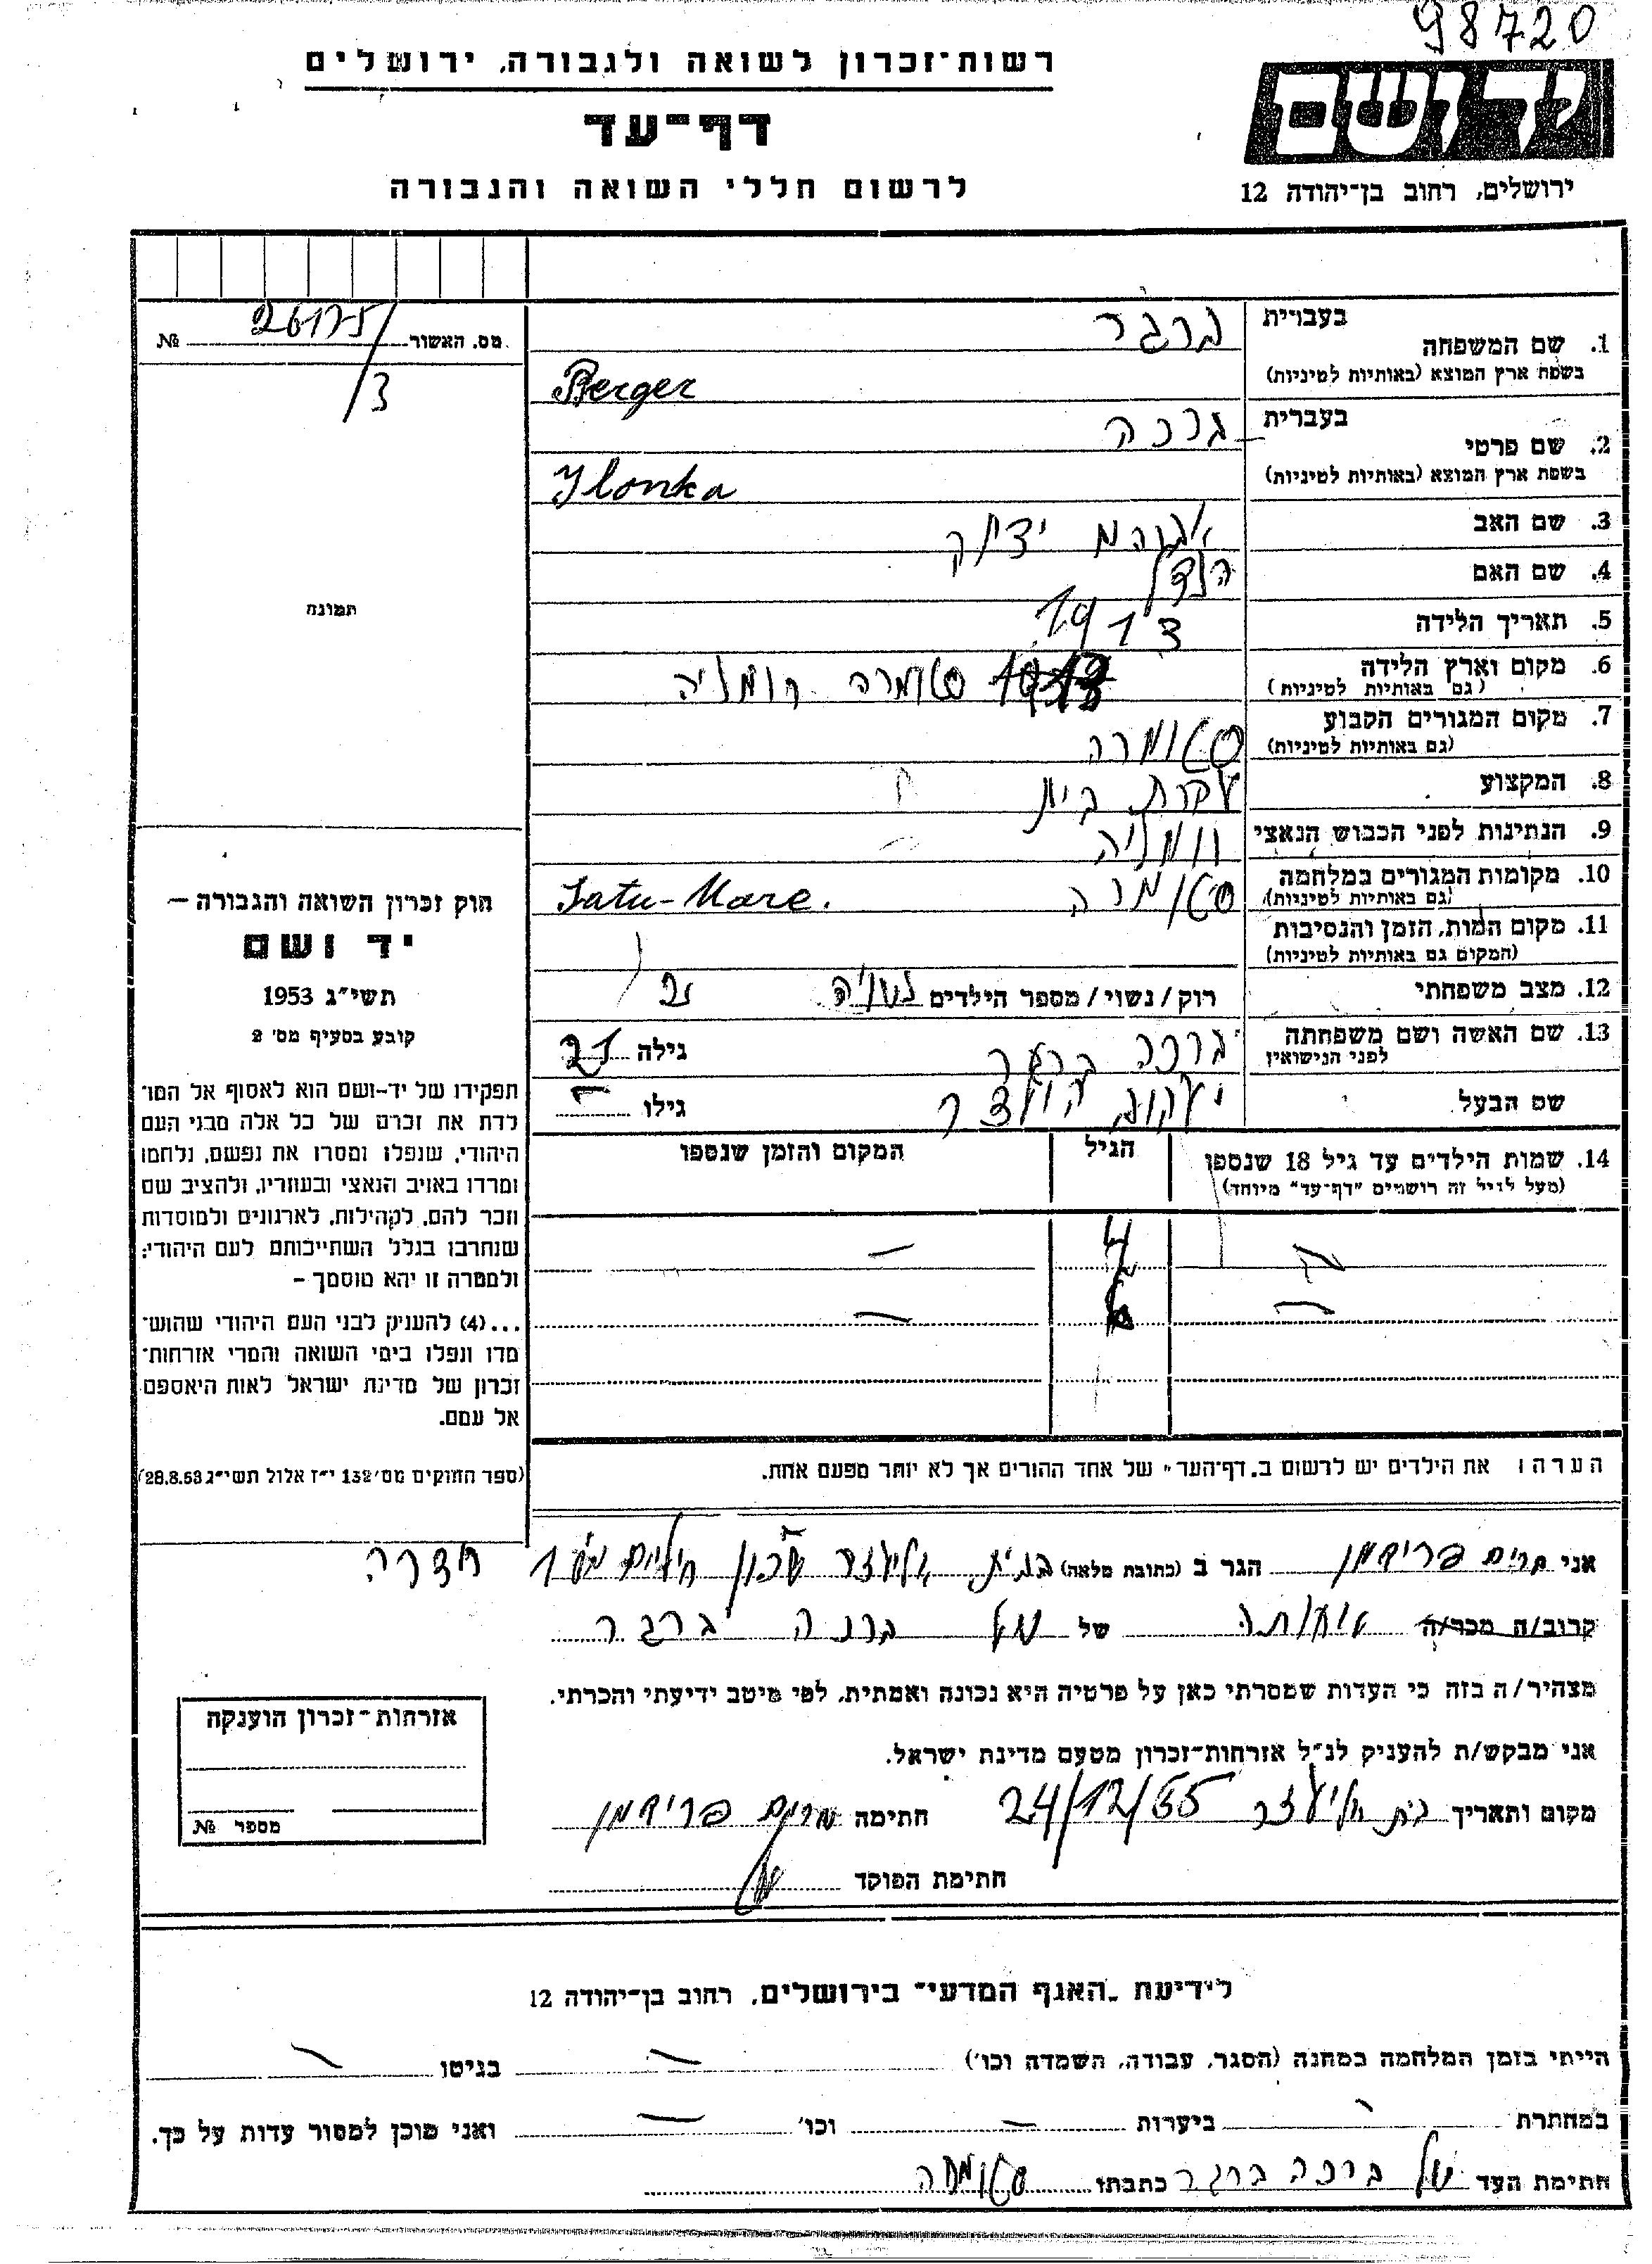 98720
רשות־זכרון לשואה ולגבורה, ירושלים
יד ושם
דף־עד
לרשום חללי השואה והגבורה
ירושלים, רחוב בן־יהודה 12
מס. האשור №
3
1. שם המשפחה
בעברית ברגר
בשפת ארץ המוצא (באותיות לטיניות) Berger
2. שם פרטי
בעברית ברכה
בשפת ארץ המוצא (באותיות לטיניות) Ilonka
3. שם האב אברהם יצחק
4. שם האם הנדל
5. תאריך הלידה
6. מקום וארץ הלידה סטומרה רומניה
(גם באותיות לטיניות)
7. מקום המגורים הקבוע סטומרה
(גם באותיות לטיניות)
8. המקצוע עקרת בית
9. הנתינות לפני הכבוש הנאצי רומניה
10. מקומות המגורים במלחמה סטומרה Satu-Mare.
(גם באותיות לטיניות)
11. מקום המות, הזמן והנסיבות
(המקום גם באותיות לטיניות)
12. מצב משפחתי רוק/נשוי/מספר הילדים נשואה 2
13. שם האשה ושם משפחתה ברכה ברגר גילה
לפני הנישואין
שם הבעל יעקב גילו
14. שמות הילדים עד גיל 18 שנספו הגיל המקום והזמן שנספו
(מעל לגיל זה רושמים "דף־עד" מיוחד)
תמונה
חוק זכרון השואה והגבורה –
יד ושם
תשי"ג 1953
קובע בסעיף מס' 2
תפקידו של יד-ושם הוא לאסוף אל המו־
לדת את זכרם של כל אלה מבני העם
היהודי, שנפלו ומסרו את נפשם, נלחמו
ומרדו באויב הנאצי ובעוזריו, ולהציב שם
וזכר להם, לקהילות, לארגונים ולמוסדות
שנחרבו בגלל השתייכותם לעם היהודי;
ולמטרה זו יהא מוסמך –
...(4) להעניק לבני העם היהודי שהוש־
מדו ונפלו בימי השואה והמרי אזרחות־
זכרון של מדינת ישראל לאות היאספם
אל עמם.
(ספר החוקים מס' 132 י"ז אלול תשי"ג 28.8.53)
הערה: את הילדים יש לרשום ב„דף־העד" של אחד ההורים אך לא יותר מפעם אחת.
אני מרים פרידמן הגר ב (כתובת מלאה) בית אליעזר שכון חדרה
קרוב/ה מכר/ה אחותה של ברכה ברגר
מצהיר/ה בזה כי העדות שמסרתי כאן על פרטיה היא נכונה ואמתית, לפי מיטב ידיעתי והכרתי.
אני מבקש/ת להעניק לנ"ל אזרחות־זכרון מטעם מדינת ישראל.
מקום ותאריך בית אליעזר 24/12/55 חתימה מרים פרידמן
חתימת הפוקד
אזרחות־זכרון הוענקה
מספר №
לידיעת „האגף המדעי" בירושלים, רחוב בן־יהודה 12
הייתי בזמן המלחמה במחנה (הסגר, עבודה, השמדה וכו') בגיטו
במחתרת ביערות וכו' ואני מוכן למסור עדות על כך.
חתימת העד של ברכה ברגר כתבתו